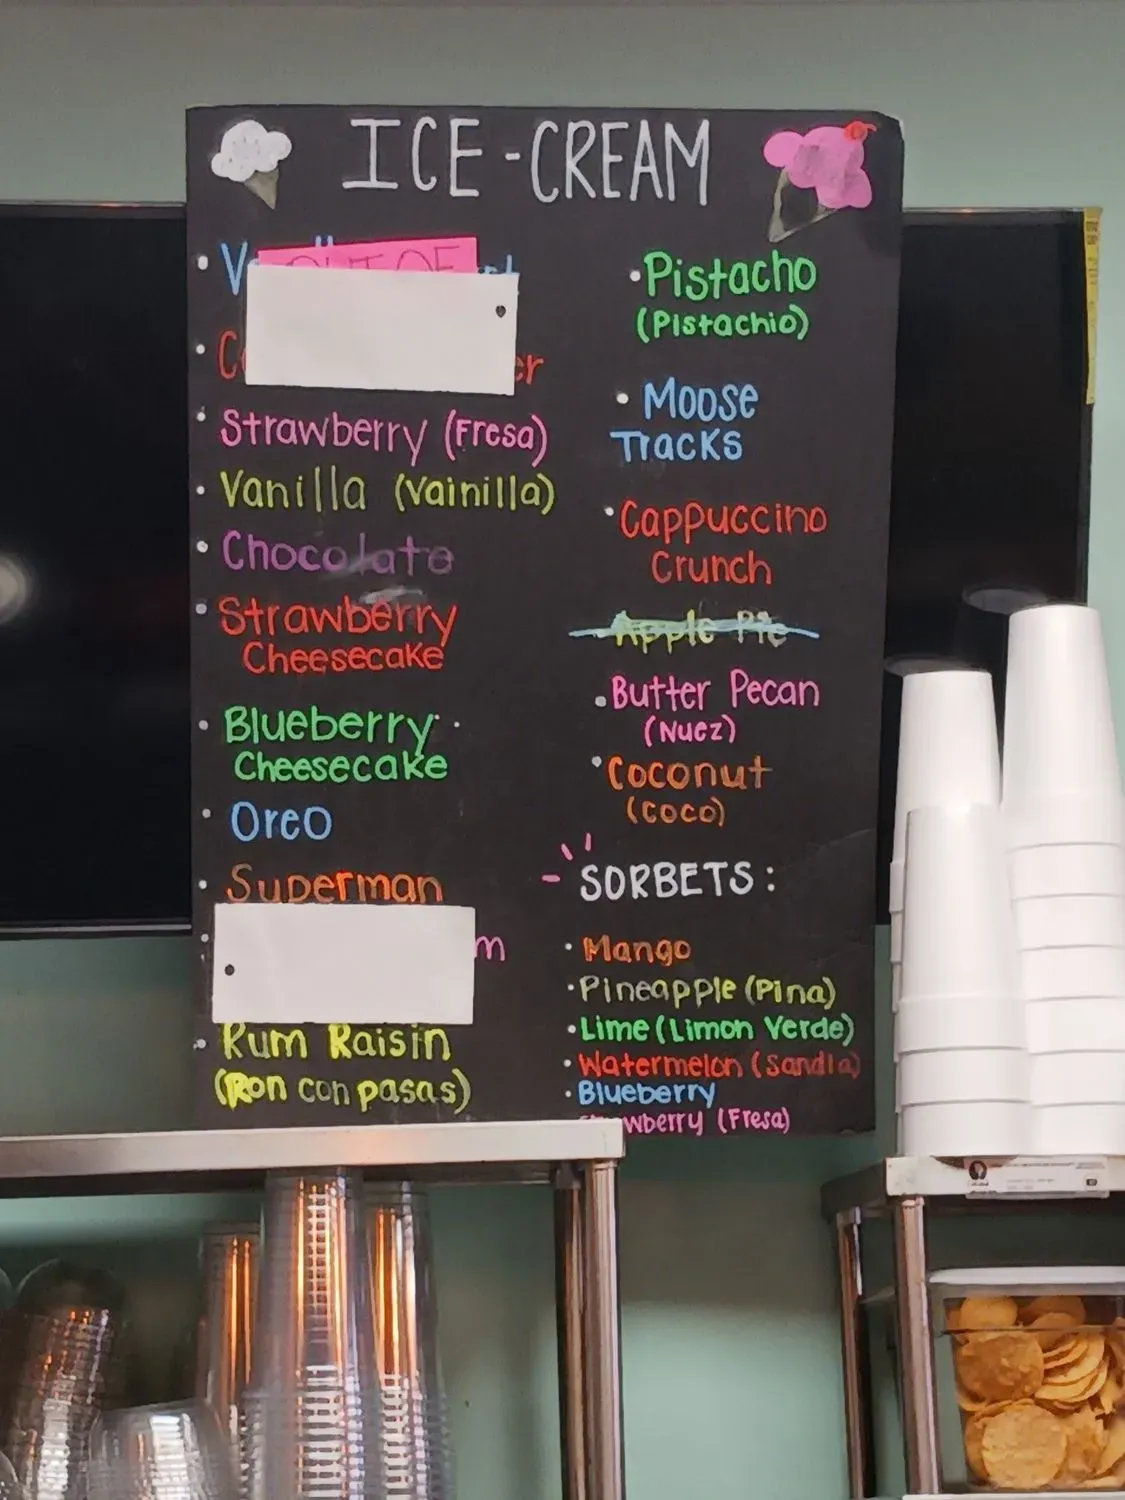 ICE-CREAM
OUT OF
Strawberry (Fresa)
Vanilla (Vainilla)
Chocolate
Strawberry
Cheesecake
Blueberry
Cheesecake
Oreo
Superman
Rum Raisin
(Ron con pasas)
Pistacho
(Pistachio)
Moose
Tracks
Cappuccino
Crunch
Apple Pie
Butter Pecan
(Nuez)
Coconut
(Coco)
SORBETS:
Mango
Pineapple (Pina)
Lime (Limon Verde)
Watermelon (Sandia)
Blueberry
(Fresa)